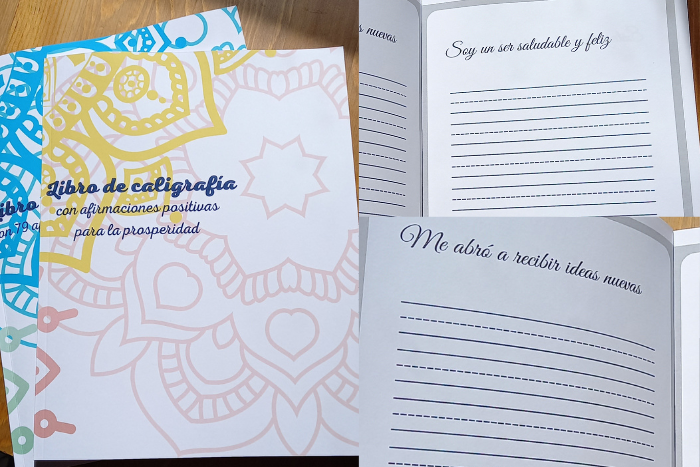 Libro de caligrafía
con afirmaciones positivas
para la prosperidad
ibro
on 79 a
s nuevas
Soy un ser saludable y feliz
Me abró a recibir ideas nuevas